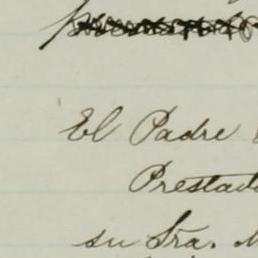 El Padre
Prestad
su Sra. M